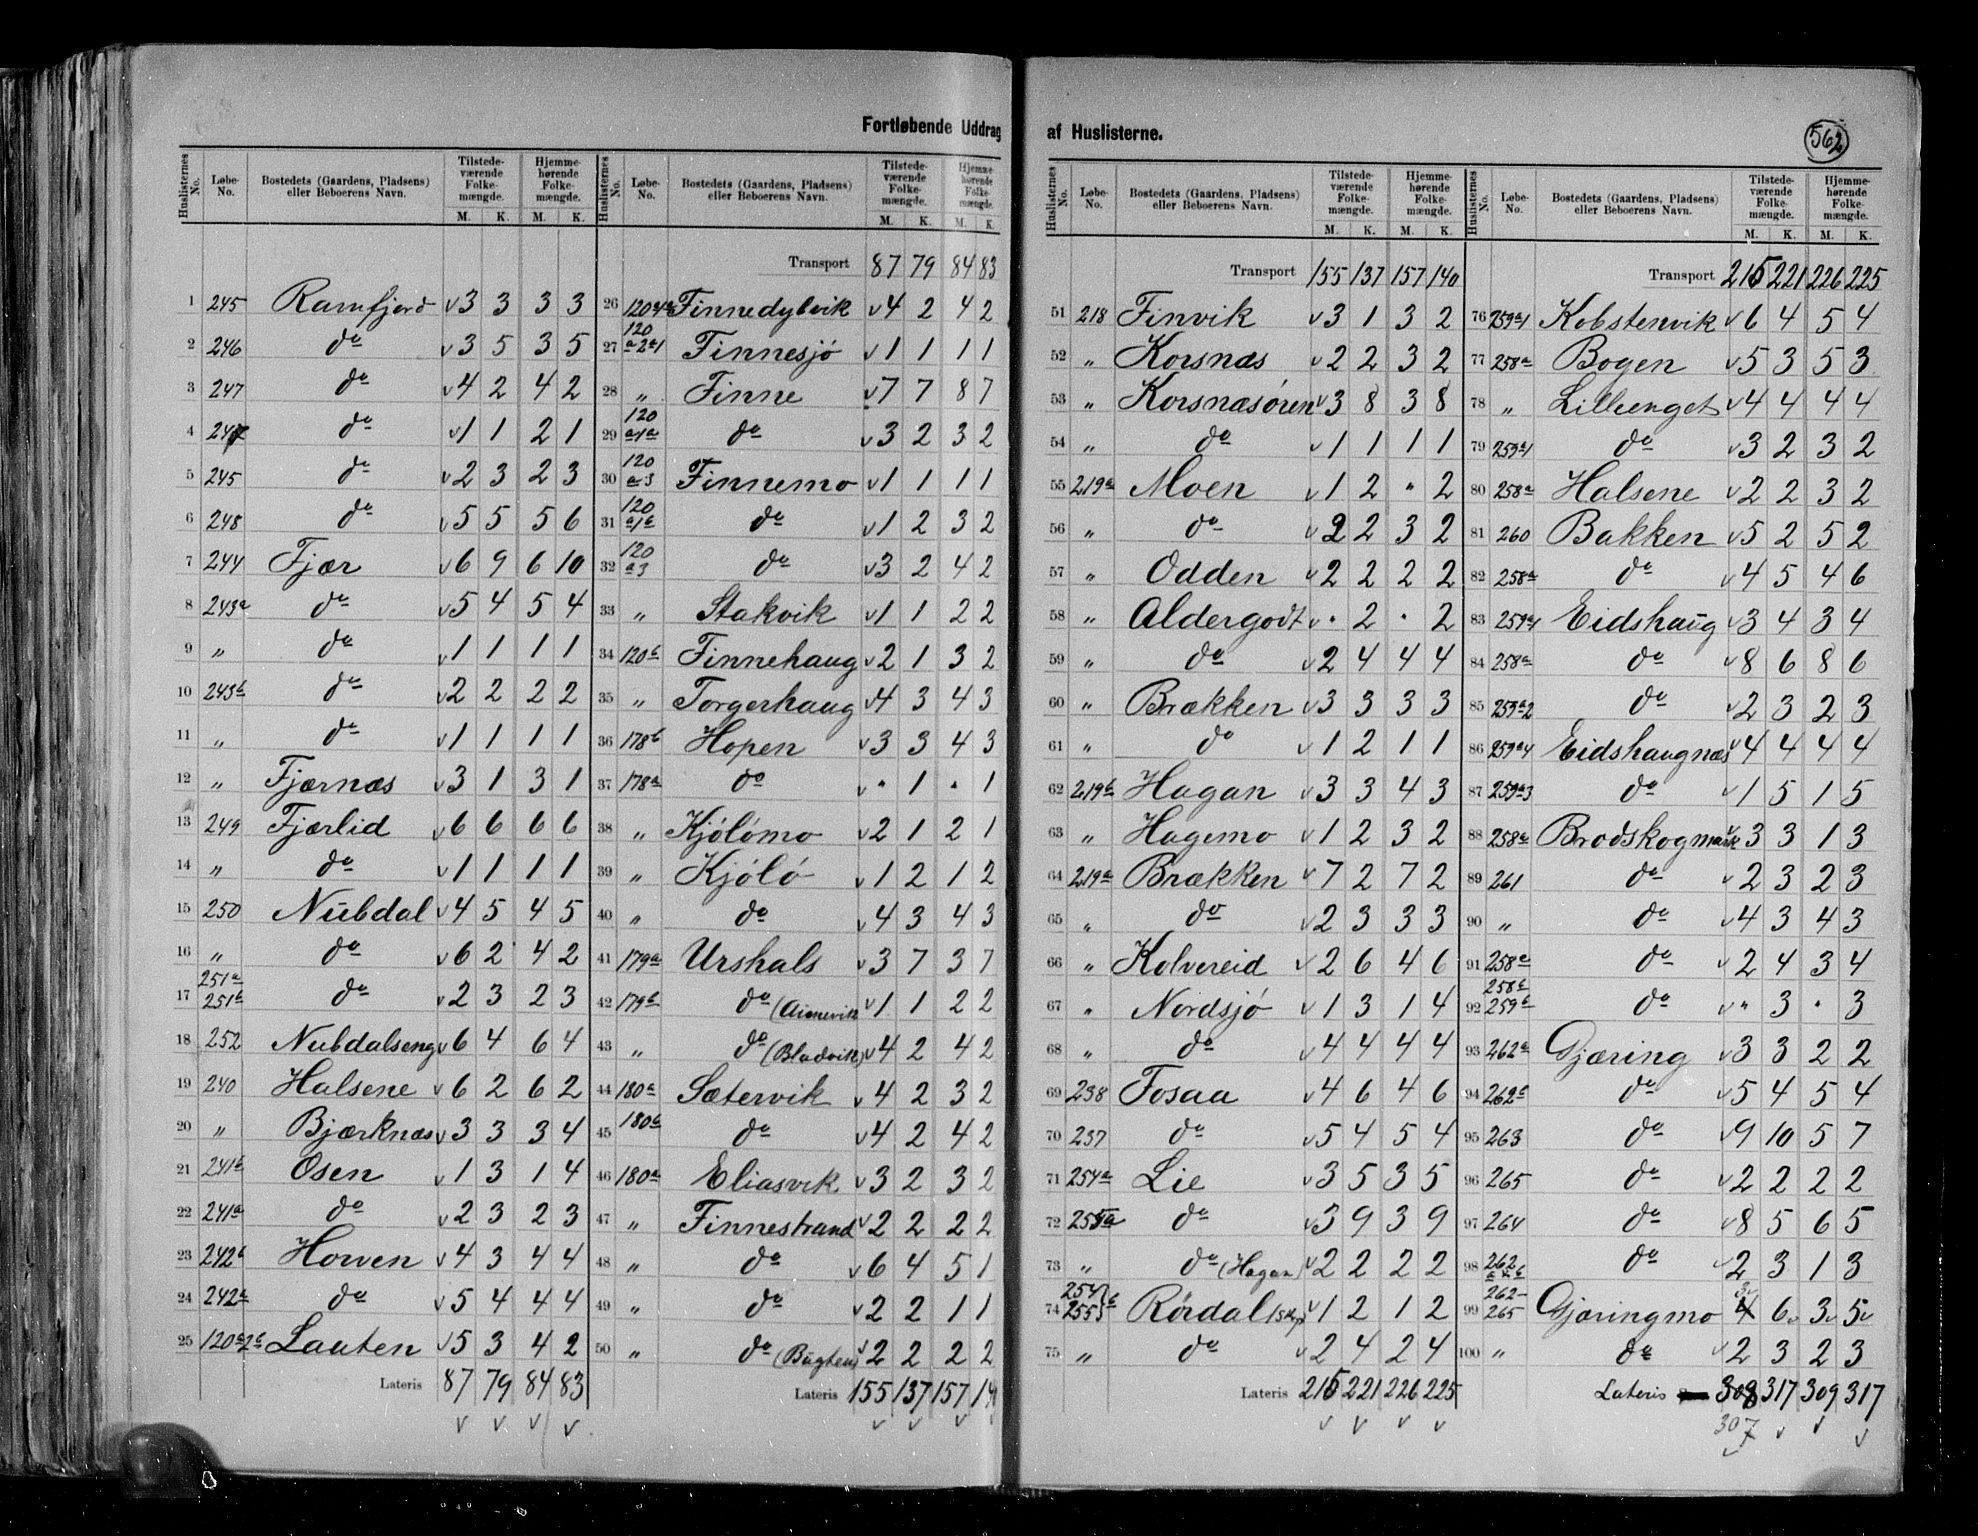 Fortløbende Uddrag af Huslisterne.
562
Huslisternes No. | Løbe-No. | Bostedets (Gaardens, Pladsens) eller Beboerens Navn. | Tilstedeværende Folkemængde. M. K. | Hjemmehørende Folkemængde. M. K.
1 245 Ramfjord v 3 3 3 3
2 246 do v 3 5 3 5
3 247 do v 4 2 4 2
4 247 do v 1 1 2 1
5 245 do v 2 3 2 3
6 248 do v 5 5 5 6
7 244 Fjær v 6 9 6 10
8 243a do v 5 4 5 4
9 " do v 1 1 1 1
10 243b do v 2 2 2 2
11 " do v 1 1 1 1
12 " Fjærnæs v 3 1 3 1
13 249 Fjærlid v 6 6 6 6
14 " do v 1 1 1 1
15 250 Nubdal v 4 5 4 5
16 " do v 6 2 4 2
17 251a 251b do v 2 3 2 3
18 252 Nubdalseng v 6 4 6 4
19 240 Halsene v 6 2 6 2
20 " Bjærknæs v 3 3 3 4
21 241b Osen v 1 3 1 4
22 241a do v 2 3 2 3
23 242b Horven v 4 3 4 4
24 242a do v 5 4 4 4
25 120a2b Lauten v 5 3 4 2
Lateris 87 79 84 83
v v v v
Huslisternes No. | Løbe-No. | Bostedets (Gaardens, Pladsens) eller Beboerens Navn. | Tilstedeværende Folkemængde. M. K. | Hjemmehørende Folkemængde. M. K.
Transport 87 79 84 83
26 120a4a Finnedybvik v 4 2 4 2
27 120 a2a1 Finnesjø v 1 1 1 1
28 " Finne v 7 7 8 7
29 120 a1a do v 3 2 3 2
30 120 a3 Finnemo v 1 1 1 1
31 120 a1b do v 1 2 3 2
32 120 a3 do v 3 2 4 2
33 " Stakvik v 1 1 2 2
34 120b Finnehaug v 2 1 3 2
35 " Torgerhaug v 4 3 4 3
36 178b Hopen v 3 3 4 3
37 178a do v " 1 " 1
38 " Kjölömo v 2 1 2 1
39 " Kjölö v 1 2 1 2
40 " do v 4 3 4 3
41 179a Urshals v 3 7 3 7
42 179b do (Aunevik v 1 1 2 2
43 " do (Bladvik) v 4 2 4 2
44 180a Sætervik v 4 2 3 2
45 180b do v 4 2 4 2
46 180a Eliasvik v 3 2 3 2
47 " Finnestrand v 2 2 2 2
48 " do v 6 4 5 1
49 " do v 2 2 1 1
50 " do (Bugten) v 2 2 2 2
Lateris 155 137 157 14
v v v v
Huslisternes No. | Løbe-No. | Bostedets (Gaardens, Pladsens) eller Beboerens Navn. | Tilstedeværende Folkemængde. M. K. | Hjemmehørende Folkemængde. M. K.
Transport 155 137 157 140
51 218 Finvik v 3 1 3 2
52 " Korsnæs v 2 2 3 2
53 " Korsnæsören v 3 8 3 8
54 " do v 1 1 1 1
55 219a Moen v 1 2 " 2
56 " do v 2 2 3 2
57 " Odden v 2 2 2 2
58 " Aldergodt v " 2 " 2
59 " do v 2 4 4 4
60 " Brækken v 3 3 3 3
61 " do v 1 2 1 1
62 219b Hagan v 3 3 4 3
63 " Hagemo v 1 2 3 2
64 219a Brækken v 7 2 7 2
65 " do v 2 3 3 3
66 " Kolvereid v 2 6 4 6
67 " Nordsjö v 1 3 1 4
68 " do v 4 4 4 4
69 238 Fosaa v 4 6 4 6
70 237 do v 5 4 5 4
71 254a Lie v 3 5 3 5
72 255a do v 3 9 3 9
73 " do (Hagan) v 2 2 2 2
74 254 255 b Rördal v 1 2 1 2
75 " do v 2 4 2 4
Lateris 215 221 226 225
v v v v
Huslisternes No. | Løbe-No. | Bostedets (Gaardens, Pladsens) eller Beboerens Navn. | Tilstedeværende Folkemængde. M. K. | Hjemmehørende Folkemængde. M. K.
Transport 215 221 226 225
76 259a1 Kobstenvik v 6 4 5 4
77 258a Bogen v 5 3 5 3
78 " Lilleenget v 4 4 4 4
79 259a1 do v 3 2 3 2
80 258a Halsene v 2 2 3 2
81 260 Bakken v 5 2 5 2
82 258a do v 4 5 4 6
83 259a1 Eidshaug v 3 4 3 4
84 258a do v 8 6 8 6
85 259a2 do v 2 3 2 3
86 259a4 Eidshaugnæs v 4 4 4 4
87 259a3 do v 1 5 1 5
88 258a Brodskogmark v 3 3 1 3
89 261 do v 2 3 2 3
90 " do v 4 3 4 3
91 258a do v 2 4 3 4
92 258b 259b do v " 3 " 3
93 262a Gjæring v 3 3 2 2
94 262b do v 5 4 5 4
95 263 do v 9 10 5 7
96 265 do v 2 2 2 2
97 264 do v 8 5 6 5
98 262 a & b do v 2 3 1 3
99 262- 265 Gjæringmo 4 3v 6v 3v 5v
100 " do v 2 3 2 3
Lateris 308 317 309 317
307 v v v
v